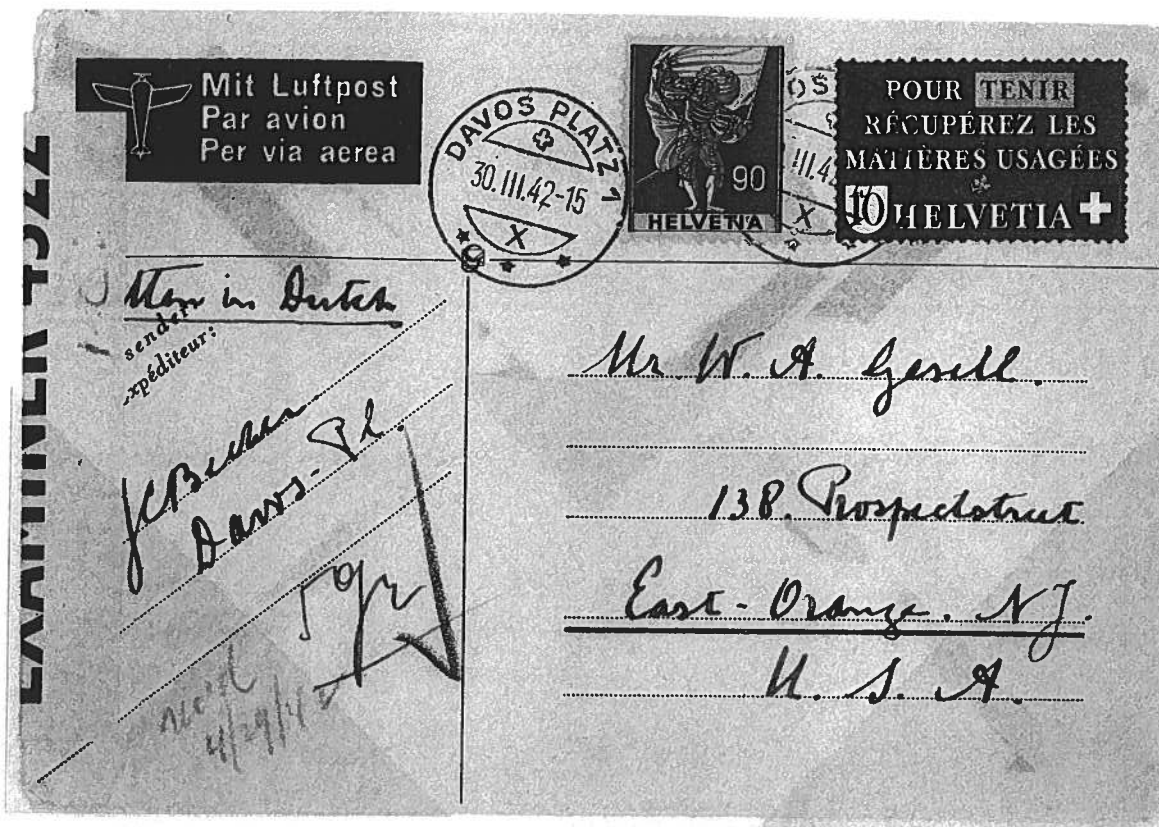 Mit Luftpost
Par avion
Per via aerea
DAVOS PLATZ 1
30.III.42-15
X
90
HELVETIA
POUR TENIR
RÉCUPÉREZ LES
MATIÈRES USAGÉES
10 HELVETIA
EXAMINER 4522
in Dutch
sender
xpéditeur:
Davos-Pl.
rec'd
4/29/42
Mr. W. A. Gesell.
138. Prospectstreet
East-Orange. N.J.
U. S. A.